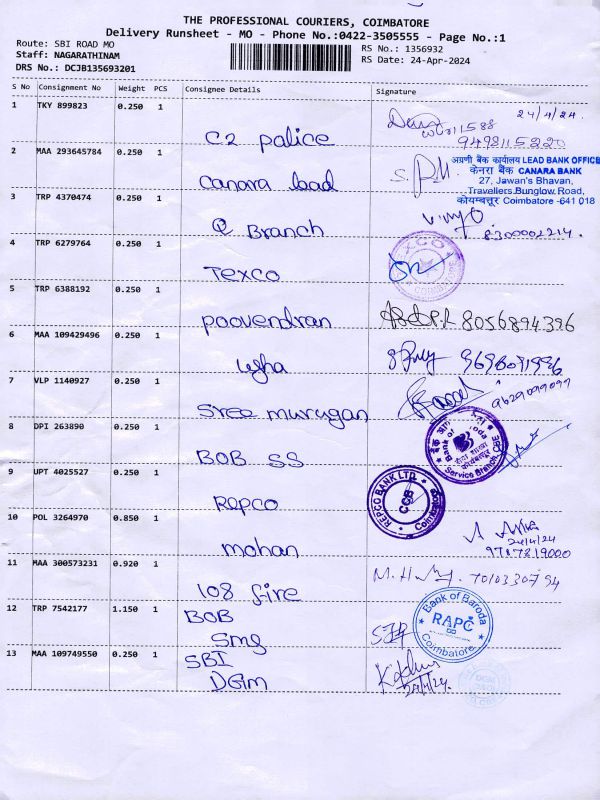 THE PROFESSIONAL COURIERS, COIMBATORE
Delivery Runsheet - MO - Phone No.:0422-3505555 - Page No.:1
Route: SBI ROAD MO
RS No.: 1356932
Staff: NAGARATHINAM
RS Date: 24-Apr-2024
DRS No.: DCJB135693201
S No Consignment No Weight PCS Consignee Details Signature
1 TKY 899823 0.250 1 C2 police 24/4/24
9498115220
2 MAA 293645784 0.250 1 Canara lead
अग्रणी बैंक कार्यालय LEAD BANK OFFICE
केनरा बैंक CANARA BANK
27, Jawan's Bhavan,
Travellers Bunglow Road,
कोयम्बत्तूर Coimbatore -641 018
3 TRP 4370474 0.250 1 Q Branch
8300002214.
4 TRP 6279764 0.250 1 Texco
TEXCO
5 TRP 6388192 0.250 1 poovendran 8056894396
6 MAA 109429496 0.250 1 Usha
7 VLP 1140927 0.250 1 Sree murugan 9629099099
8 DPI 263890 0.250 1 BOB SS
Bank of Baroda
Service Branch, CBE
9 UPT 4025527 0.250 1 Repco
REPCO BANK LTD.
CCB
Coimbatore
10 POL 3264970 0.850 1 mohan
24/4/24
9787219000
11 MAA 300573231 0.920 1 108 fire 7010330794
12 TRP 7542177 1.150 1 BOB
SMS
Bank of Baroda
RAPC
Coimbatore
13 MAA 109749550 0.250 1 SBI
DGM
24/4/24.